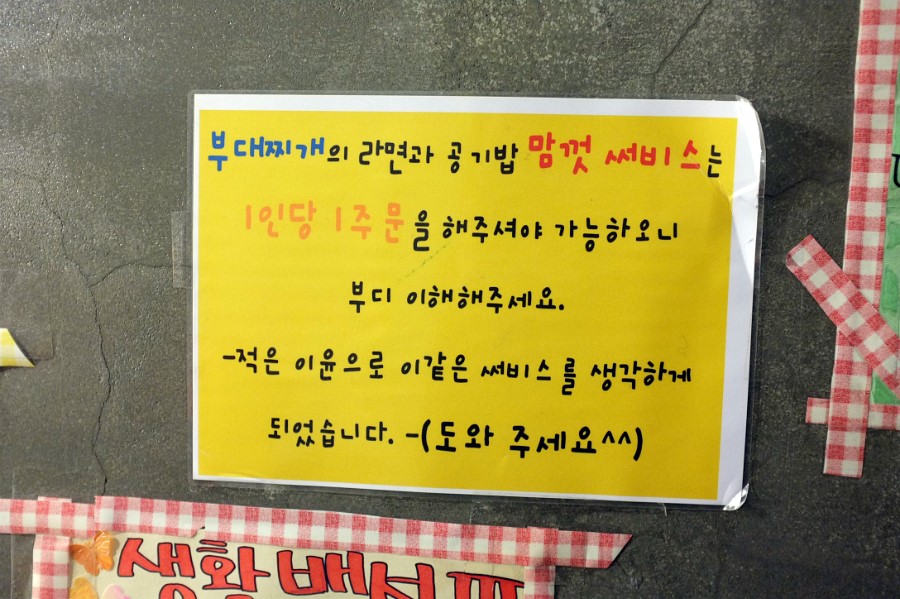 부대찌개의 라면과 공기밥 맘껏 써비스는
1인당 1주문을 해주셔야 가능하오니
부디 이해해주세요.
-적은 이윤으로 이같은 써비스를 생각하게
되었습니다. -(도와 주세요^^)
생활